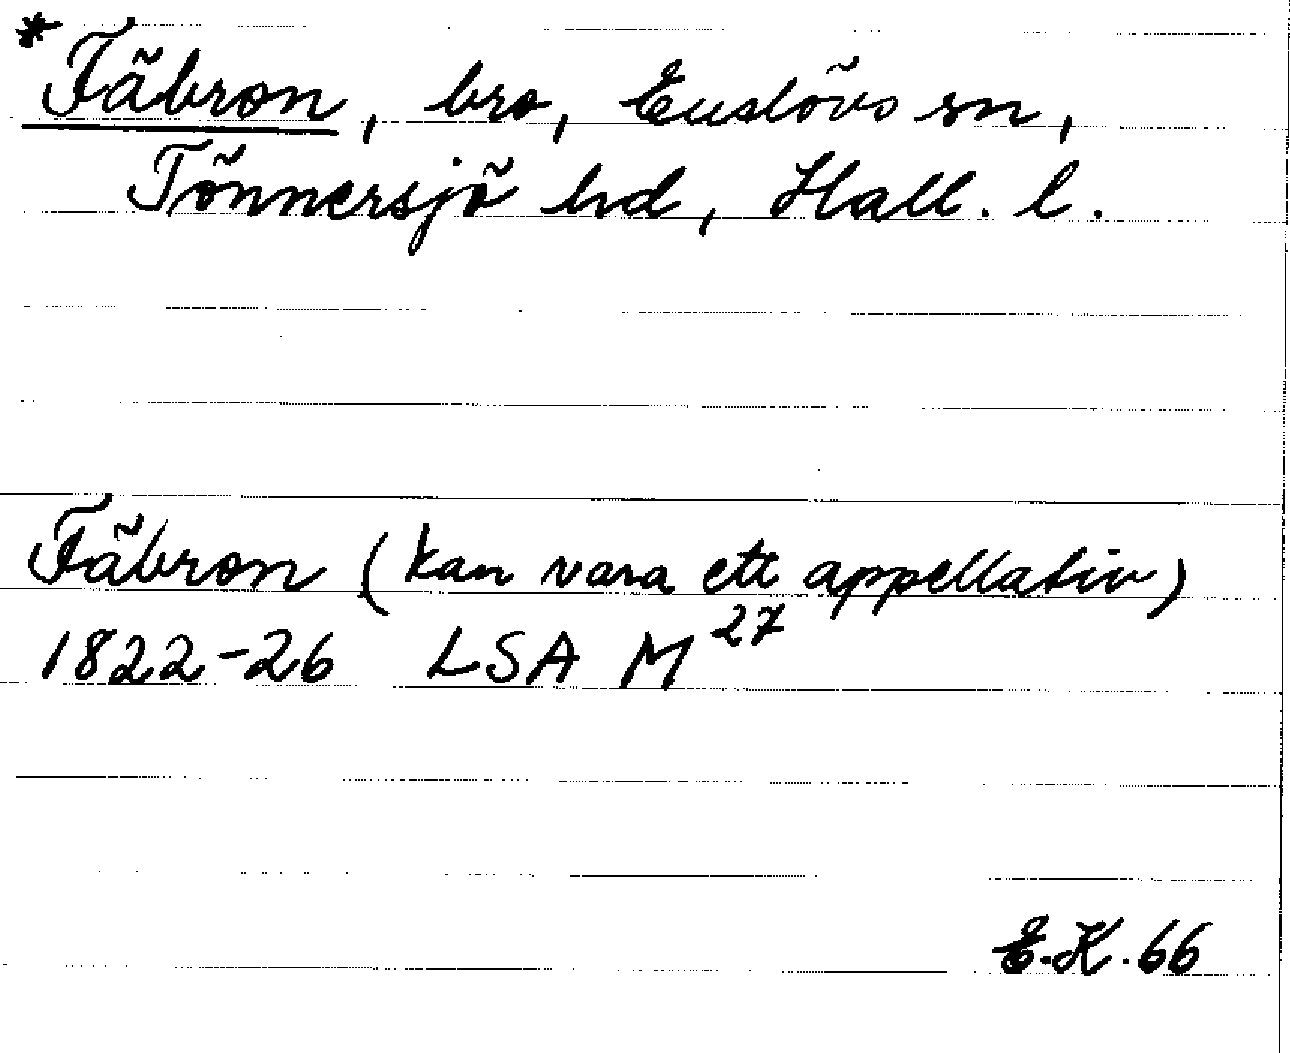 *Fäbron, bro, Euslövs sn,
Tönnersjö hd, Hall. l.
Fäbron (kan vara ett appellativ)
1822-26 LSA M²⁷
E.K. 66